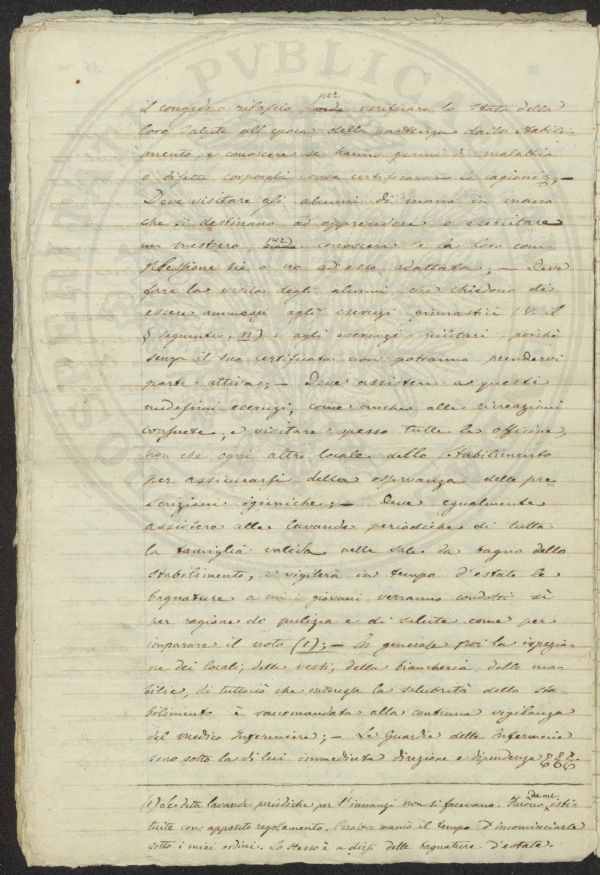 il congedo o rilascio, per verificare lo stato della
loro salute all'epoca della partenza dallo Stabili-
mento, e conoscere se hanno germi di malattia
o difetti corporali, onde certificarne le cagioni; —
Deve visitare gli alunni di mano in mano
che si destinano ad apprendere o esercitare
un mestiere, per conoscere se la loro com-
plessione sia o no ad esso adattata; — Deve
fare la visita degli alunni che chiedono di
essere ammessi agli esercizi ginnastici (V. il
§ seguente, n) e agli esercizi militari, poichè
senza il suo certificato non potranno prendervi
parte attiva; — Deve assistere a questi
medesimi esercizi, come anche alle ricreazioni
consuete, e visitare spesso tutte le officine,
non che ogni altro locale dello Stabilimento
per assicurarsi della osservanza delle pre
scrizioni igieniche; — Deve egualmente
assistere alle lavande periodiche di tutta
la famiglia valida nelle sale da bagno dello
Stabilimento, e vigilerà in tempo d'estate le
bagnature a cui i giovani verranno condotti sì
per ragione di pulizia e di salute come per
imparare il nuoto (1); — In generale poi la ispezio-
ne dei locali, delle vesti, della biancheria, delle mo-
bilie, di tuttociò che interessa la salubrità dello sta-
bilimento è raccomandata alla continua vigilanza
del medico Infermiere; — Le Guardie delle Infermerie
sono sotto la di lui immediata direzione e dipendenza
(1) Le dette lavande periodiche per l'innanzi non si facevano. Furono da me isti-
tuite con apposito regolamento. mancò il tempo d'incominciarle
sotto i miei ordini. Lo stesso è a dirsi delle bagnature d'estate.
PVBLICAE